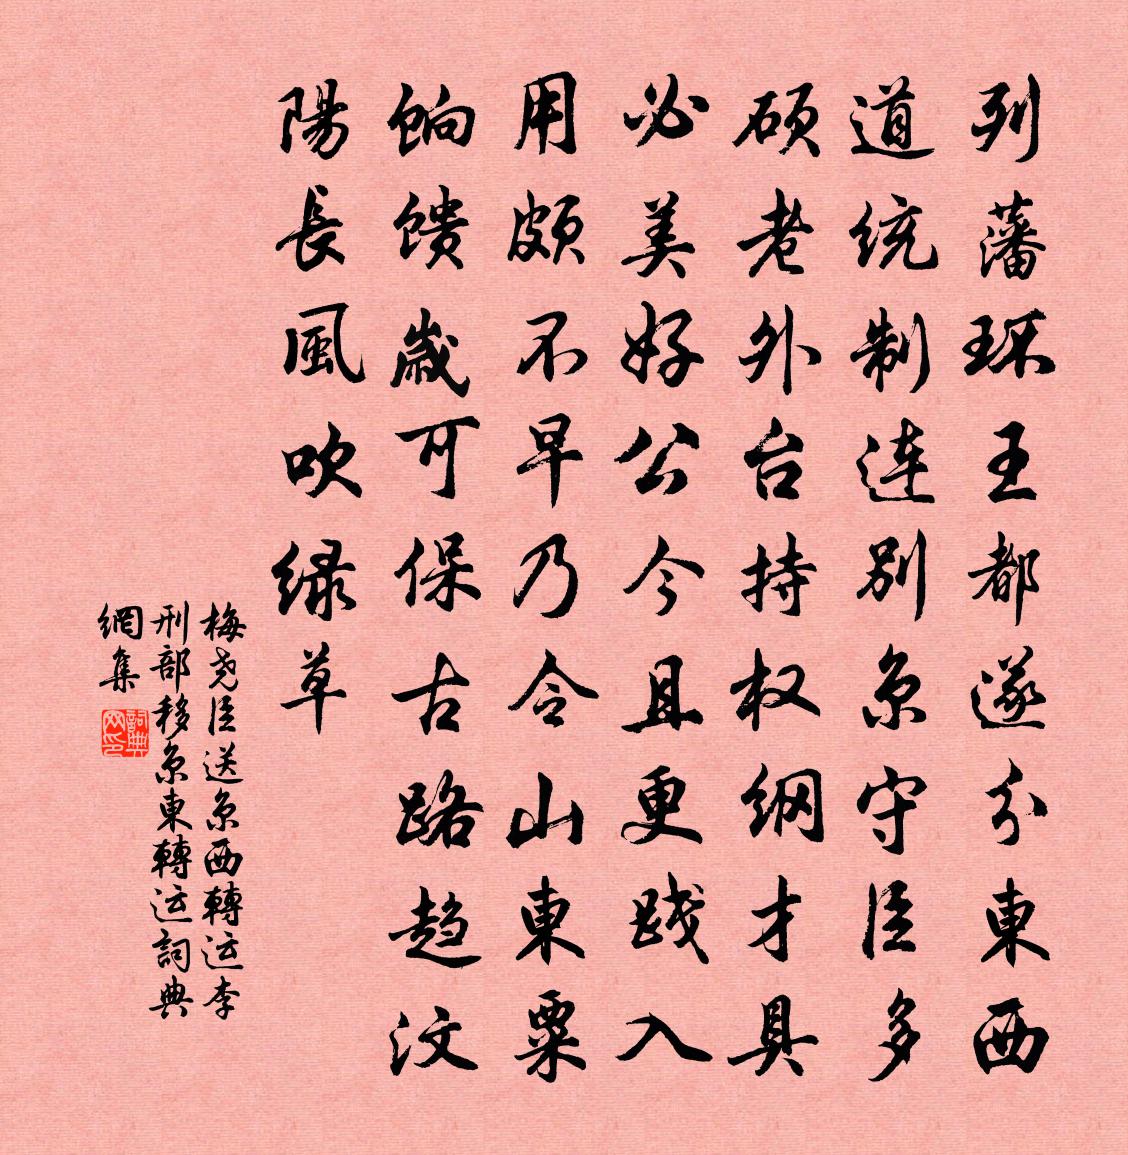 列藩环王都遂分東西
道统制連别京守臣多
硕老外台持权纲才具
必美好公今且更践入
用颇不早乃令山東粟
餉馈歲可保古路趋汶
陽長風吹绿草
梅尧臣送京西轉运李
刑部移京東轉运詞典
網集
詞典网印